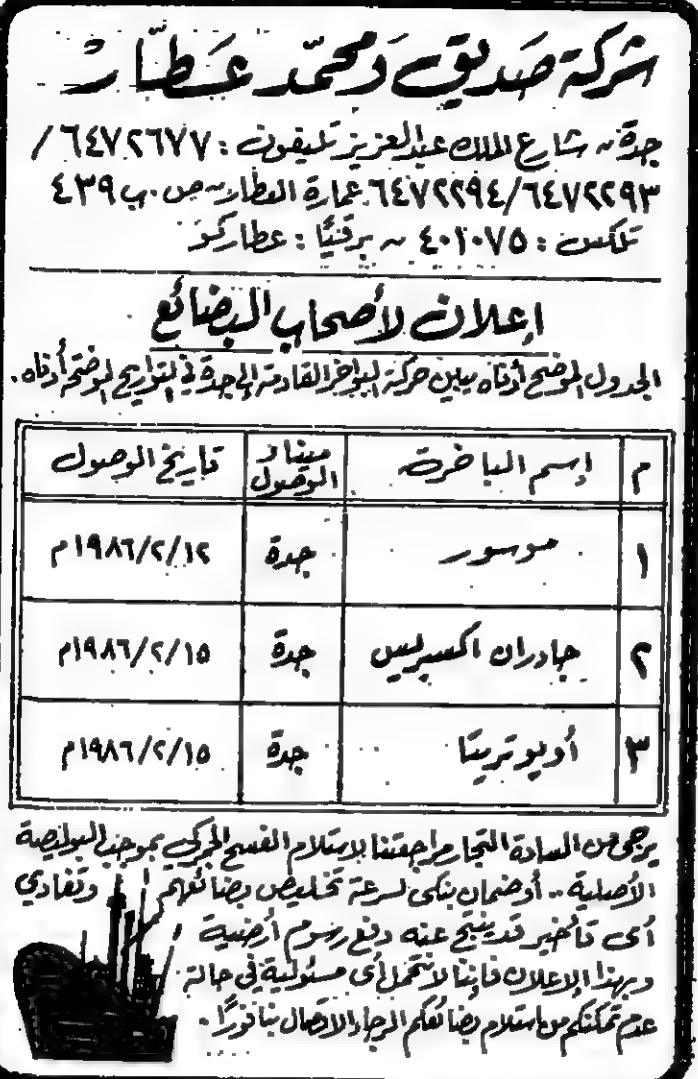 شركة صديق ومحمد عطار
جدة ـ شارع الملك عبدالعزيز تليفون : ٦٤٧٢٦٧٧ /
٦٤٧٢٢٩٤/٦٤٧٢٢٩٣ عمارة العطار ـ ص . ب ٤٣٩
تلكس : ٤٠١٠٧٥ ـ برقيًا : عطاركو
إعلان لأصحاب البضائع
الجدول الموضح أدناه يبين حركة البواخر القادمة إلى جدة في التواريخ الموضحة أدناه .
م إسم الباخرة ميناء الوصول تاريخ الوصول
١ موسور جدة ١٩٨٦/٢/١٢م
٢ جادران اكسبريس جدة ١٩٨٦/٢/١٥م
٣ أوبوتريتا جدة ١٩٨٦/٢/١٥م
يرجى من السادة التجار مراجعتنا لاستلام الفسح الجمركي بموجب البوليصة
الأصلية .. أو ضمان بنكى لسرعة تخليص بضائعهم وتفادي
أى تأخير قد ينتج عنه دفع رسوم أرضية
وبهذا الإعلان فإننا لا نتحمل أى مسئولية في حالة
عدم تمكنكم من استلام بضائعكم الرجاء الاتصال بنا فورًا .